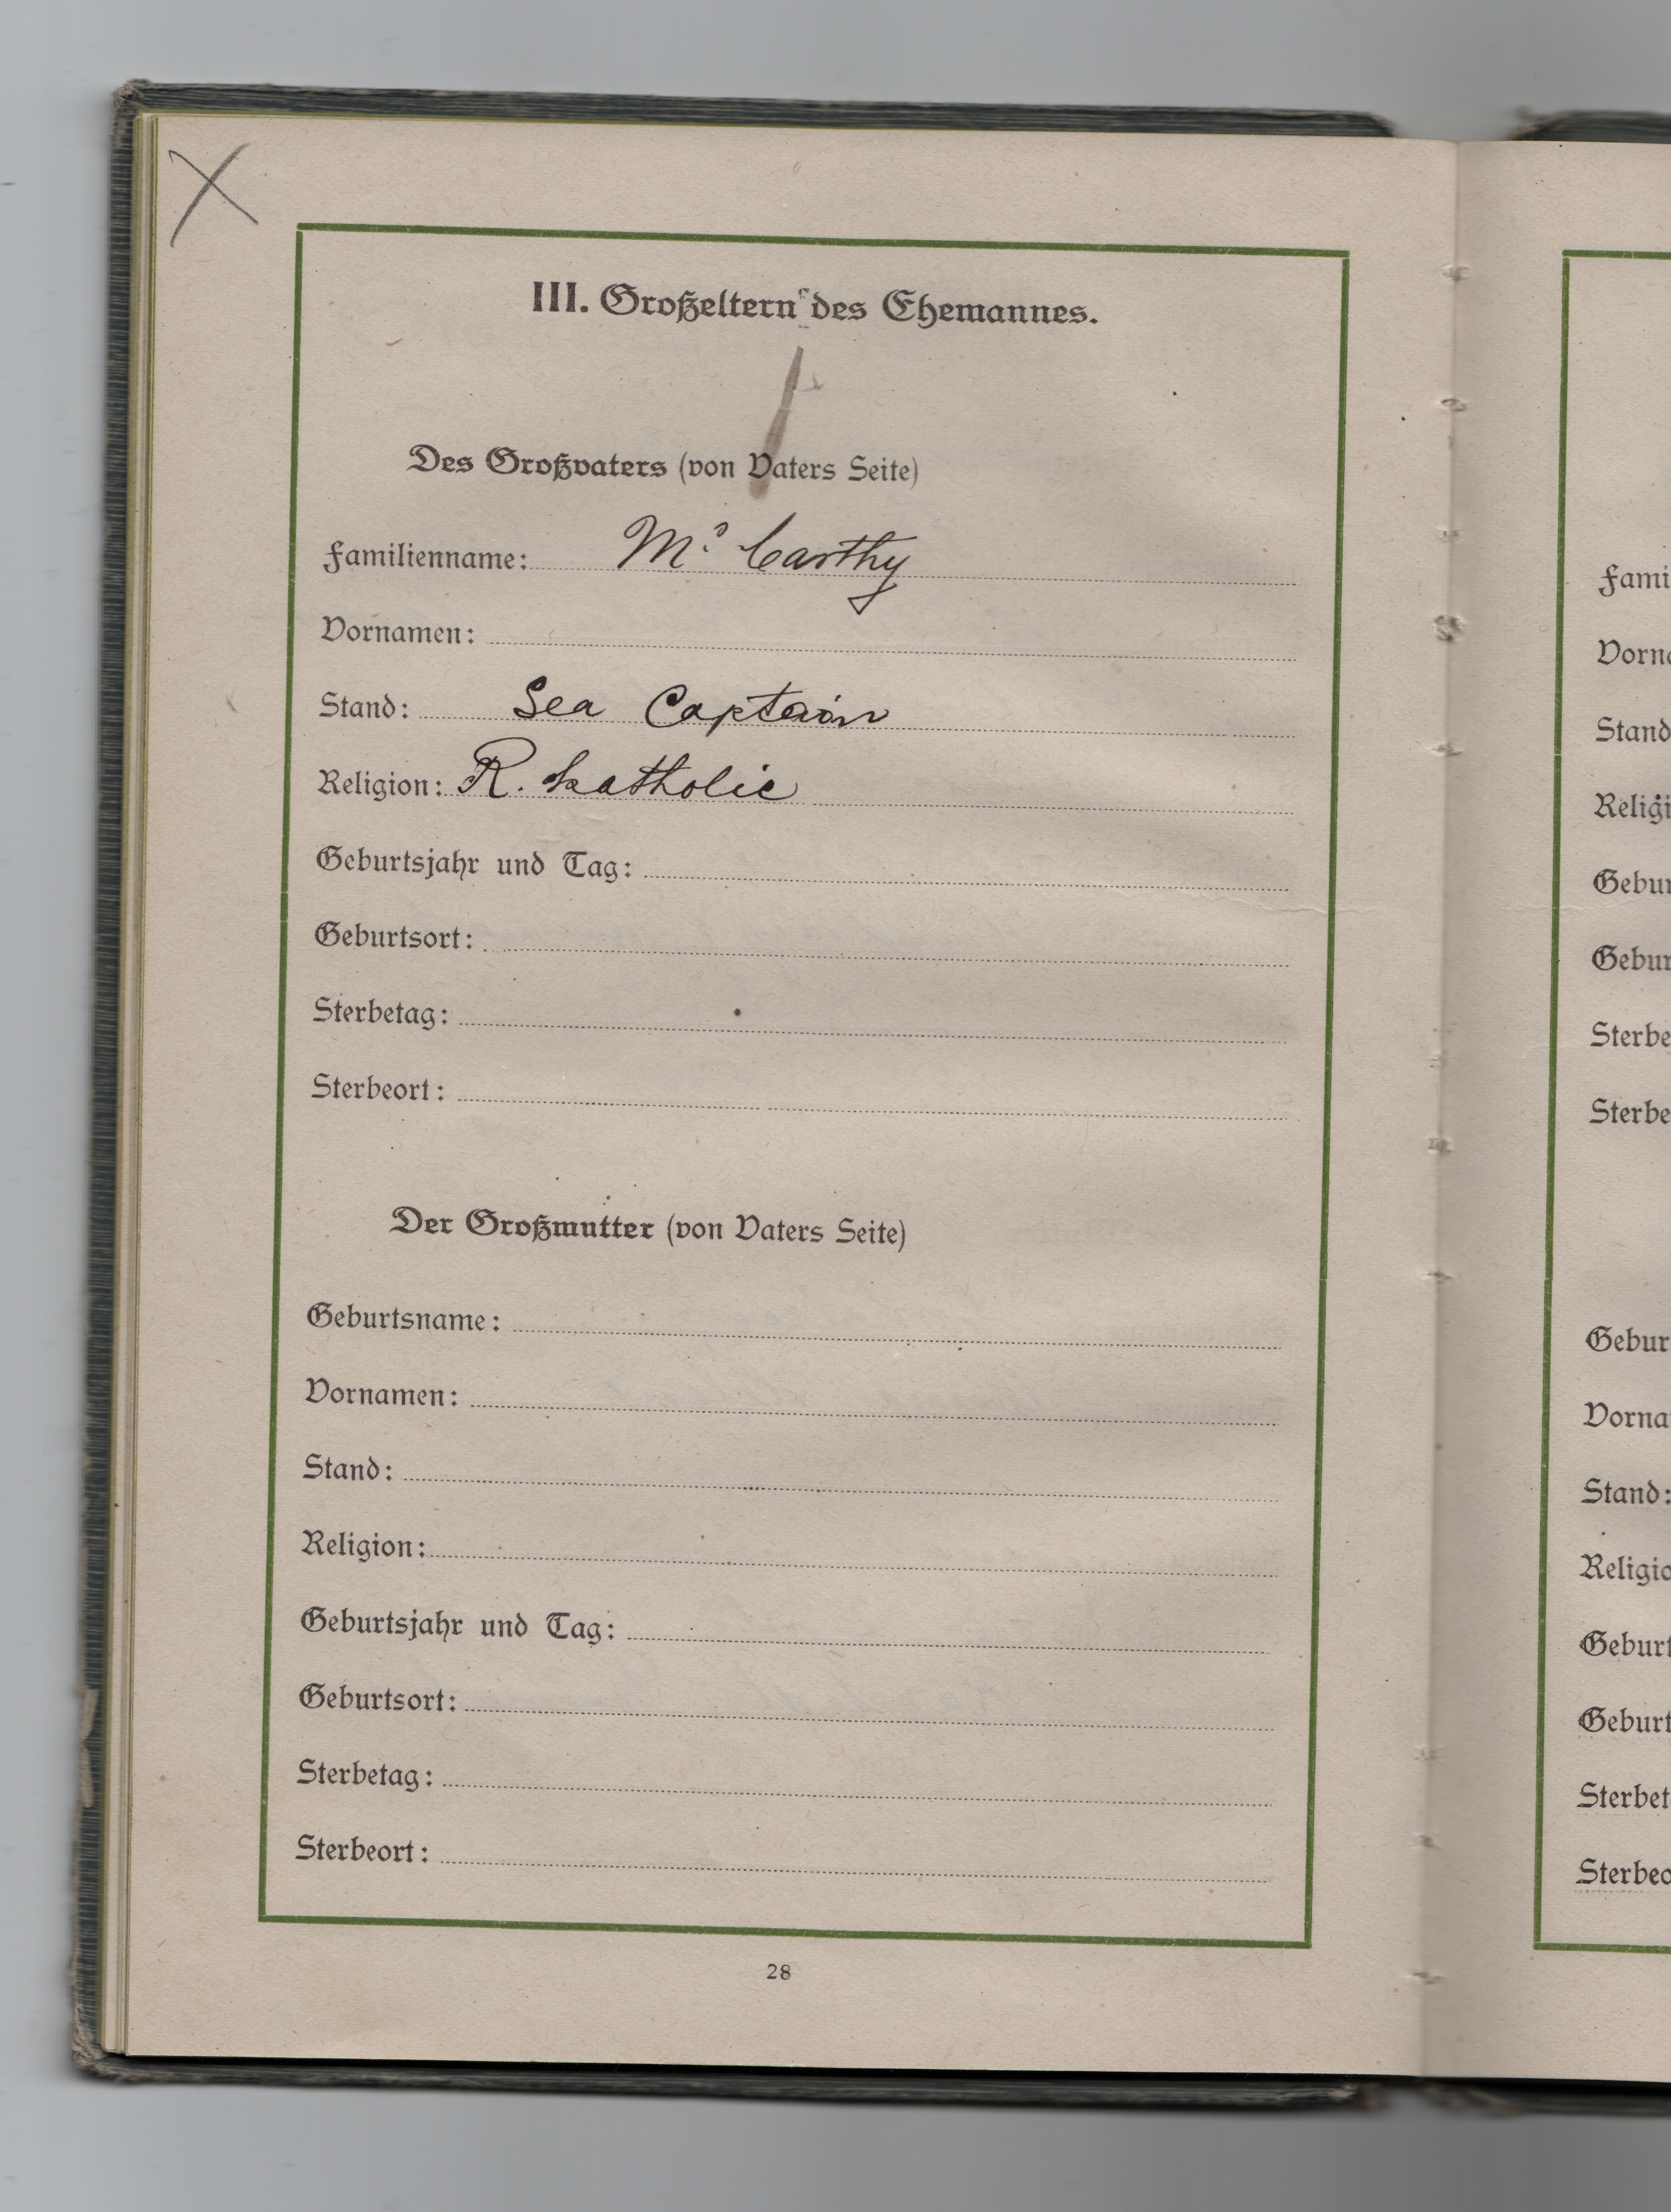 III. Großeltern des Ehemannes.
Des Großvaters (von Vaters Seite)
Familienname: Mc Carthy
Vornamen:
Stand: Sea Captain
Religion: R. Katholic
Geburtsjahr und Tag:
Geburtsort:
Sterbetag:
Sterbeort:
Der Großmutter (von Vaters Seite)
Geburtsname:
Vornamen:
Stand:
Religion:
Geburtsjahr und Tag:
Geburtsort:
Sterbetag:
Sterbeort:
28
Fami
Vorna
Stand
Religi
Gebur
Gebur
Sterbe
Sterbe
Gebur
Vorna
Stand:
Religio
Geburt
Geburt
Sterbet
Sterbeo